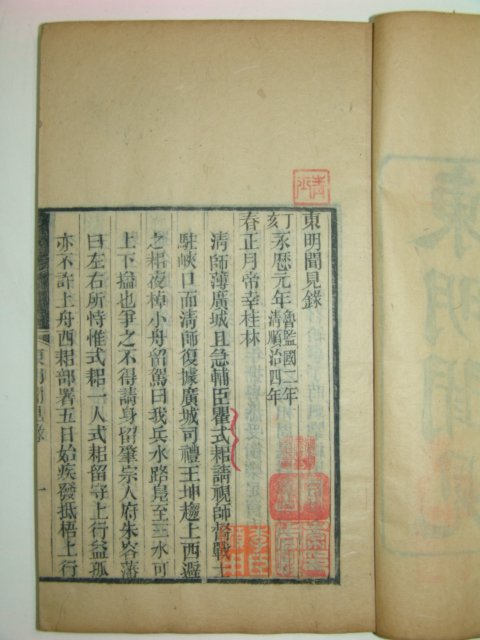 東明聞見
東明聞見錄
丁亥永曆元年魯監國二年
清順治四年
春正月帝幸桂林
清師薄廣城且急輔臣瞿式耜請視師督戰士
駐峽口而清師復據廣城司禮王坤趨上西避
之耜夜棹小舟留駕曰我兵水路至三水可
上下搤也爭之不得請身留肇宗人府朱容藩
曰左右所恃惟式耜一人式耜留守上行益孤
亦不許上舟西耜部署五日始疾發抵梧上行
東明聞見錄
一